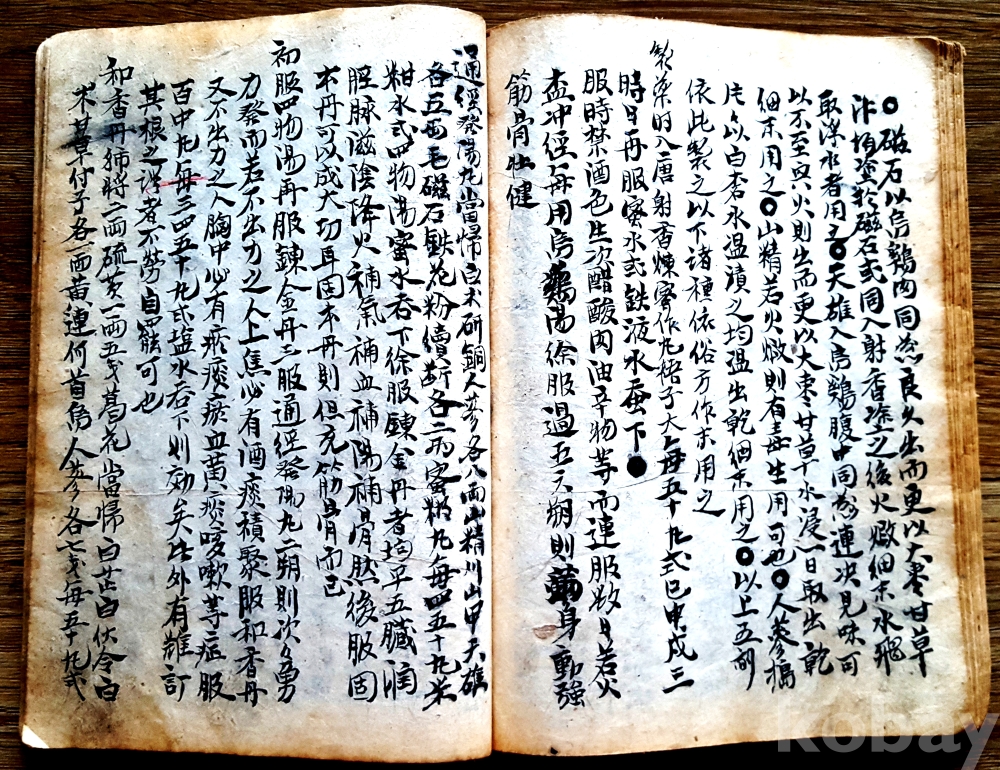 ○磁石以烏鷄肉同煮良久出而更以大棗甘草
汁均塗於磁石式同入射香塗之後火煅細末水飛
取浮水者用之○天雄入烏鷄腹中同煮連次見味可
以不至與火則出而更以大棗甘草十水浸一日取出乾
細末用之○山精若火煅則有毒生用可也○人蔘搗
片以白杏水温漬之均温出乾細末用之○以上五劑
依此製之以下諸種依俗方作末用之
製藥時入唐射香煉蜜作丸梧子大每五十丸式巳申戌三
時日再服蜜水式鉄液水蚕下●
服時禁酒色生冷醋酸肉油辛物等而連服数日若火
盃冲經每用烏鷄湯徐服過五六朔則身動強
筋骨壯健
通經發陽丸當歸白朮研銅人蔘各八兩山精川山甲天雄
各五兩毛磁石鉄花粉續斷各二兩蜜和丸每四五十丸米
柑水式四物湯蜜水吞下徐服鍊金丹者均平五臟潤
經脉滋陰降火補氣補血補陽補骨然後服固
本丹可以成大功耳固本丹則但充筋骨而已
初服四物湯再服鍊金丹三服通經發陽丸二朔則次々勇
力發而若不出力之人上焦必有酒痰積聚服和香丹
又不出力之人胸中必有瘀痰瘀血黃痰咳嗽等症服
百中丸每三四五十丸式塩水吞下則効矣此外有雜訂
其根之深者不勞自罷可也
和香丹神將二兩硫黃一兩五戔葛花當帰白芷白伏令白
朮草付子各一兩黃連何首烏人蔘各七戔每五十丸式